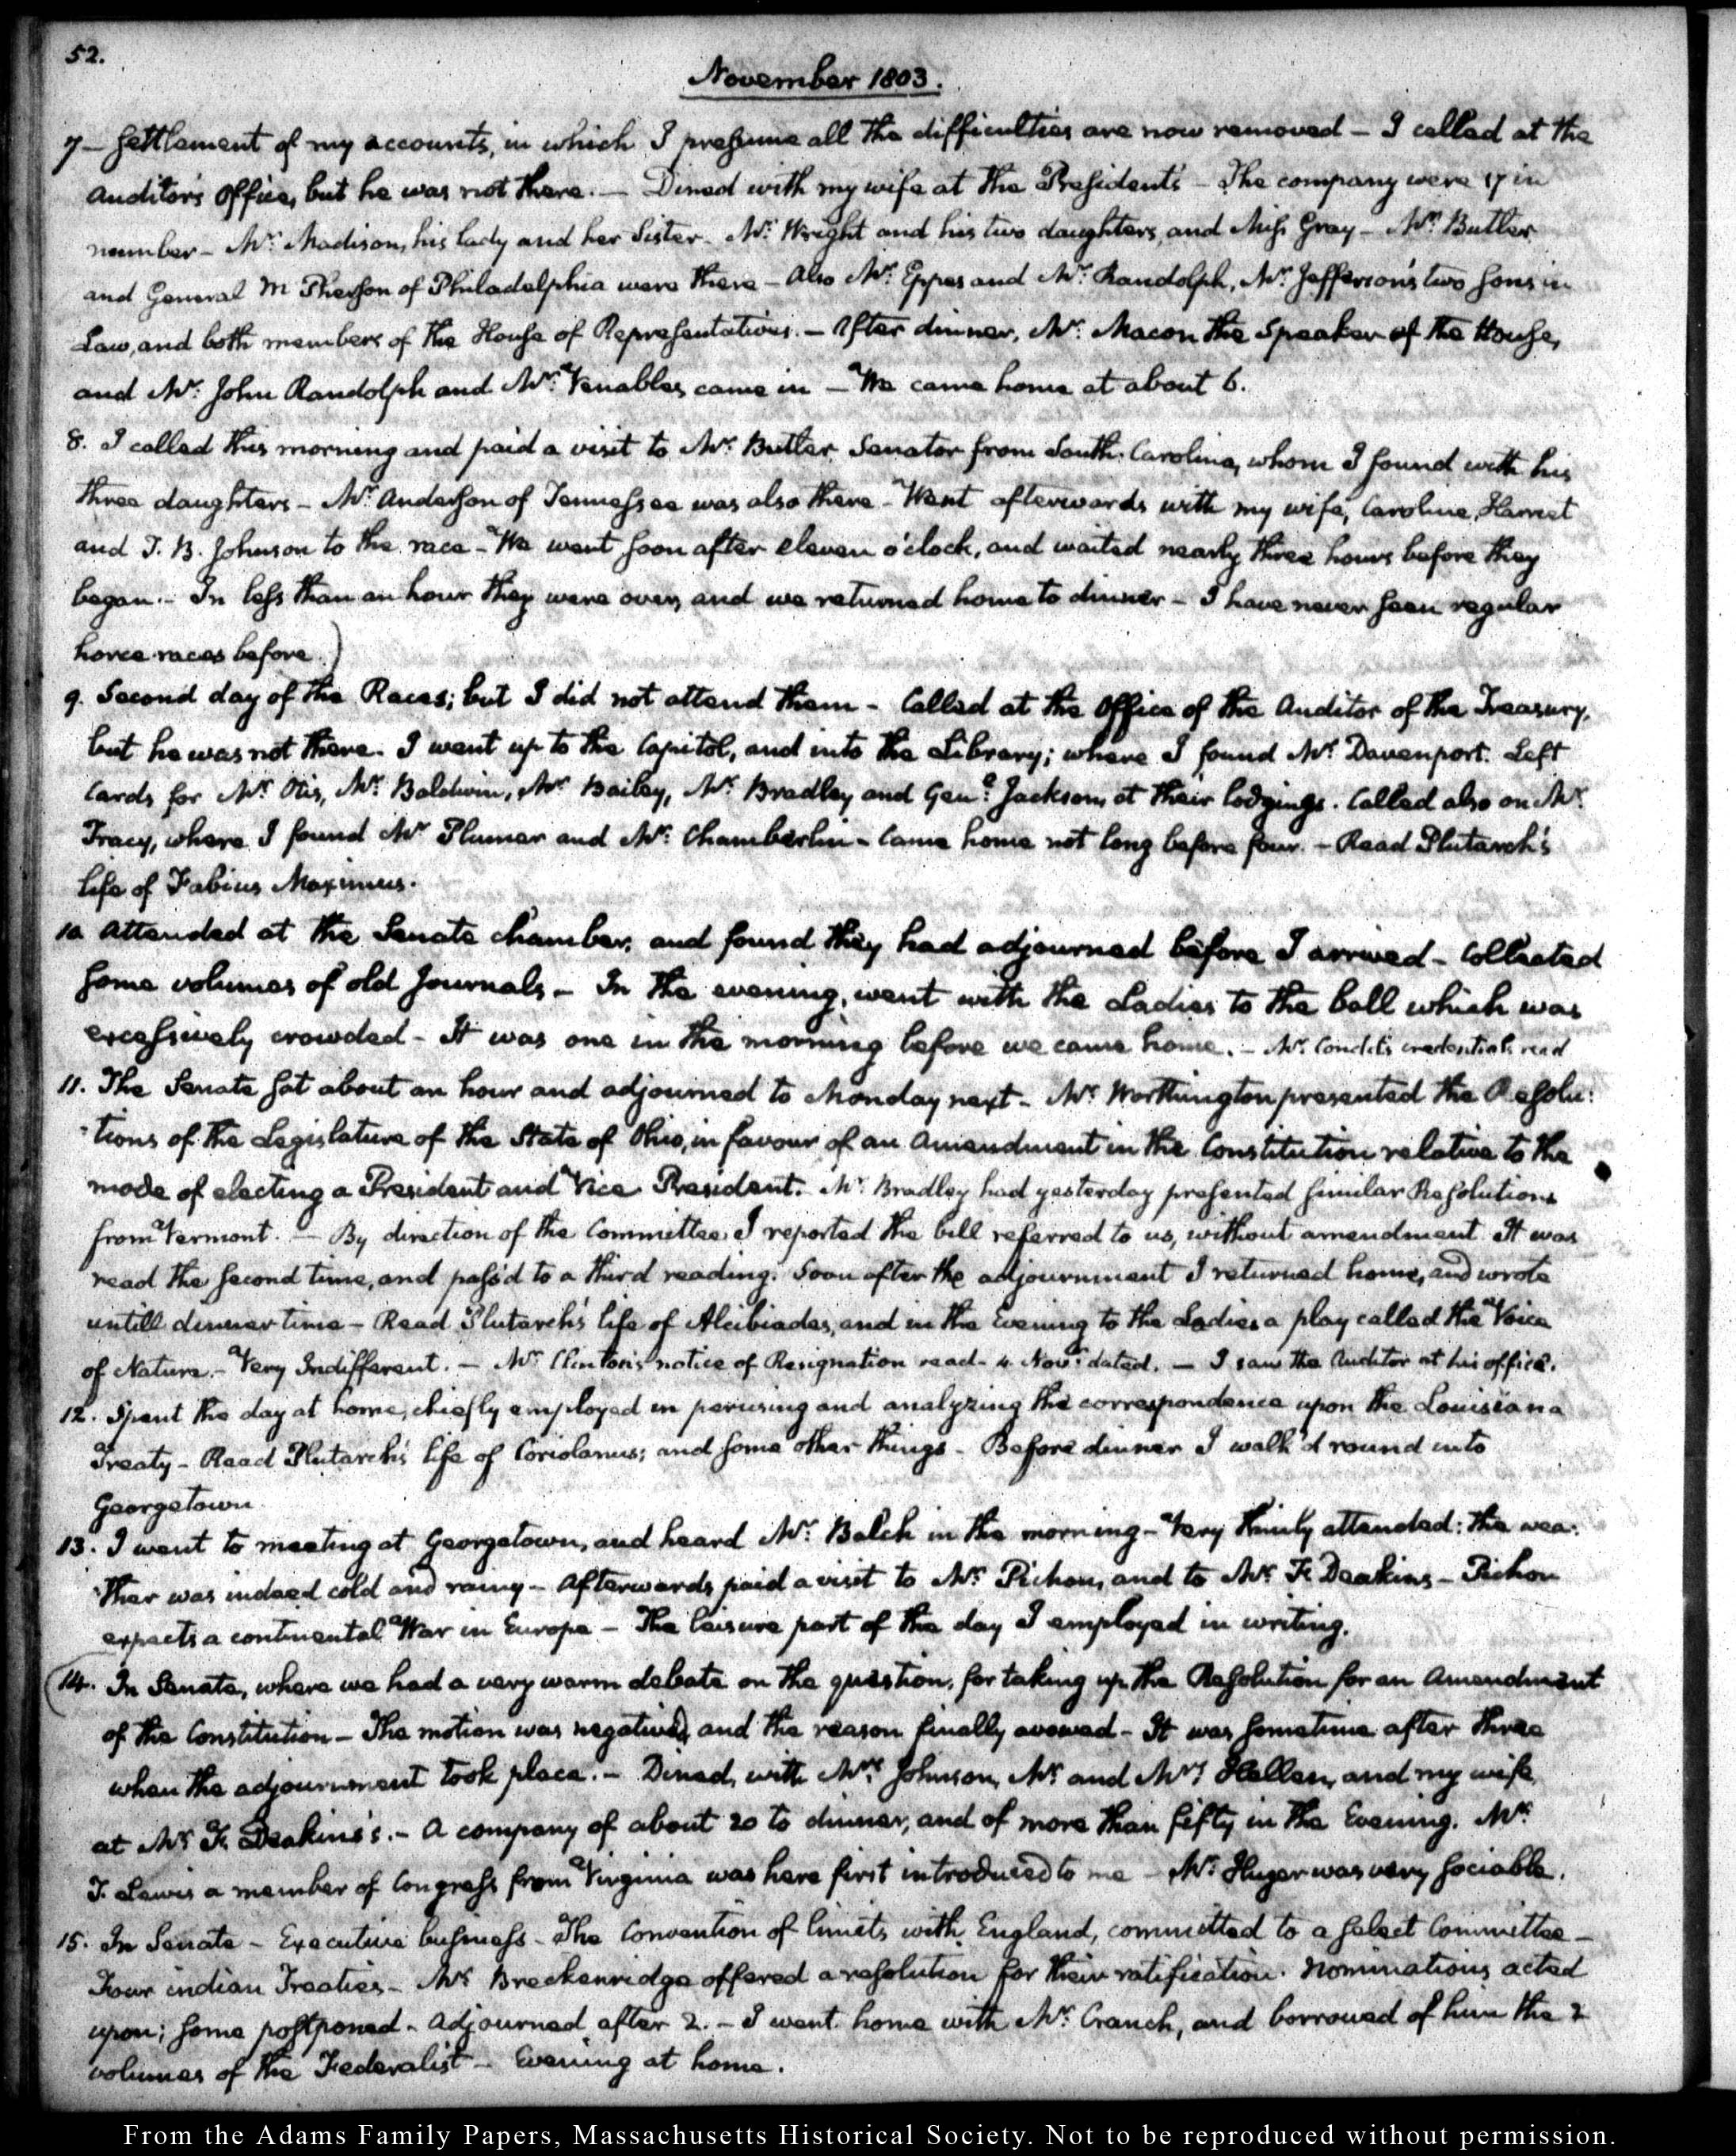 52.
November 1803.
7 — Settlement of my accounts, in which I presume all the difficulties are now removed — I called at the
Auditor's Office, but he was not there. — Dined with my wife at the President's — The company were 17 in
number — Mr. Madison, his lady and her Sister. Mr. Wright and his two daughters, and Miss Gray — Mr. Butler
and General McPherson of Philadelphia were there — Also Mr. Eppes and Mr. Randolph, Mr. Jefferson's two Sons in
Law, and both members of the House of Representatives. — After dinner, Mr. Macon the Speaker of the House,
and Mr. John Randolph and Mr. Venables came in — We came home at about 6.
8. I called this morning and paid a visit to Mr. Butler Senator from South Carolina, whom I found with his
three daughters — Mr. Anderson of Tennessee was also there — Went afterwards with my wife, Caroline, Harriet
and T. B. Johnson to the race — We went soon after eleven o'clock, and waited nearly three hours before they
began. — In less than an hour they were over, and we returned home to dinner — I have never seen regular
horce-races before.)
9. Second day of the Races; but I did not attend them — Called at the Office of the Auditor of the Treasury,
but he was not there. I went up to the Capitol, and into the Library; where I found Mr. Davenport. Left
Cards for Mr. Otis, Mr. Baldwin, Mr. Bailey, Mr. Bradley and Genl. Jackson, at their lodgings. Called also on Mr.
Tracy, where I found Mr. Plumer and Mr. Chamberlin — Came home not long before four. — Read Plutarch's
life of Fabius Maximus.
10. Attended at the Senate chamber, and found they had adjourned before I arrived — Collected
some volumes of old Journals — In the evening, went with the Ladies to the ball which was
excessively crowded — It was one in the morning before we came home. — Mr. Condit's credentials read
11. The Senate sat about an hour and adjourned to Monday next — Mr. Worthington presented the Resolu:
:tions of the Legislature of the State of Ohio, in favour of an Amendment in the Constitution relative to the
mode of electing a President and Vice President. Mr. Bradley had yesterday presented similar Resolutions
from Vermont. — By direction of the Committee, I reported the bill referred to us, without amendment. It was
read the second time, and pass'd to a third reading. Soon after the adjournment I returned home, and wrote
untill dinner time — Read Plutarch's life of Alcibiades, and in the Evening to the Ladies a play called the Voice
of Nature. — Very Indifferent. — Mr. Clinton's notice of Resignation read — 4. Novr. dated. — I saw the Auditor at his office.
12. Spent the day at home, chiefly employed in perusing and analyzing the correspondence upon the Louisiana
Treaty — Read Plutarch's life of Coriolanus; and some other things — Before dinner I walk'd round into
Georgetown
13. I went to meeting at Georgetown, and heard Mr. Balch in the morning — Very thinly attended: the wea:
:ther was indeed cold and rainy — Afterwards paid a visit to Mr. Pichon, and to Mr. F. Deakins — Pichon
expects a continental War in Europe — The leisure part of the day I employed in writing.
(14. In Senate, where we had a very warm debate on the question, for taking up the Resolution for an Amendment
of the Constitution — The motion was negatived, and the reason finally avowed — It was sometime after three
when the adjournment took place. — Dined, with Mrs. Johnson, Mr. and Mrs. Hellen, and my wife,
at Mr. F. Deakins's. — A company of about 20 to dinner, and of more than fifty in the Evening. Mr.
T. Lewis a member of Congress from Virginia was here first introduced to me — Mr. Huger was very sociable.
15. In Senate — Executive business — The Convention of limits with England, committed to a select Committee —
Four indian Treaties — Mr. Breckenridge offered a resolution for their ratification. Nominations acted
upon; some postponed. Adjourned after 2. — I went home with Mr. Cranch, and borrowed of him the 2
volumes of the Federalist — Evening at home.
From the Adams Family Papers, Massachusetts Historical Society. Not to be reproduced without permission.